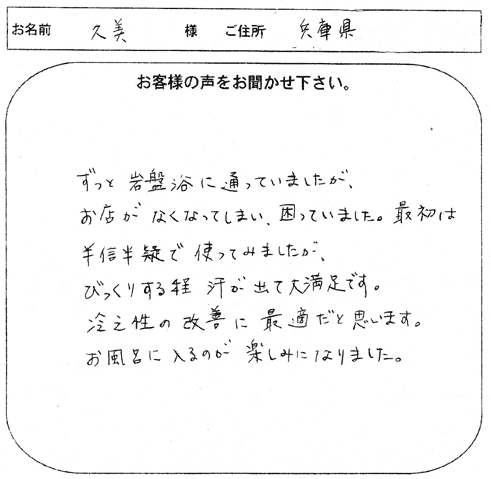 お名前 久美 様 ご住所 兵庫県
お客様の声をお聞かせ下さい。
ずっと 岩盤浴に通っていましたが、
お店が なくなってしまい、困っていました。最初は
半信半疑で 使ってみましたが、
びっくりする程 汗が出て大満足です。
冷え性の改善に最適だと思います。
お風呂に入るのが 楽しみになりました。